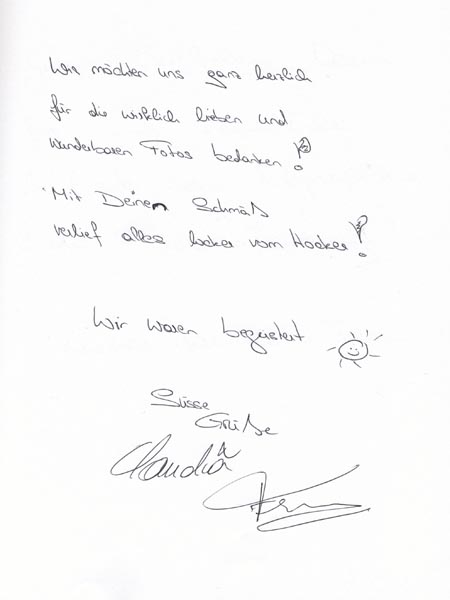 Wir möchten uns ganz herzlich
für die wirklich lieben und
wunderbaren Fotos bedanken!
Mit Deinem Schmäh
verlief alles locker vom Hocker!
Wir waren begeistert
Süsse
Grüße
Claudia